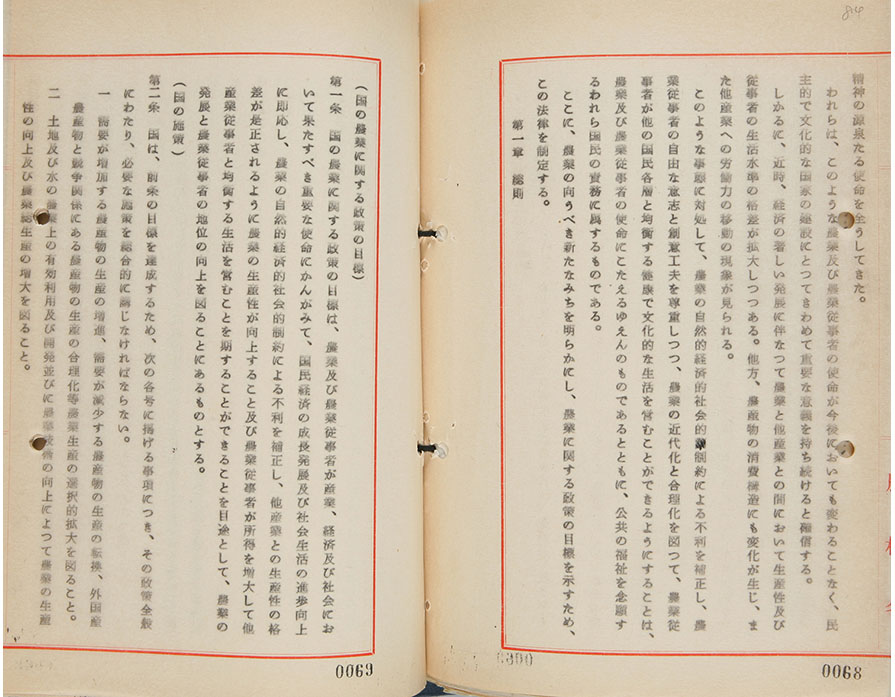 84
精神の源泉たる使命を全うしてきた。
われらは、このような農業及び農業従事者の使命が今後においても変わることなく、民
主的で文化的な国家の建設にとつてきわめて重要な意義を持ち続けると確信する。
しかるに、近時、経済の著しい発展に伴なつて農業と他産業との間において生産性及び
従事者の生活水準の格差が拡大しつつある。他方、農産物の消費構造にも変化が生じ、ま
た他産業への労働力の移動の現象が見られる。
このような事態に対処して、農業の自然的経済的社会的制約による不利を補正し、農
業従事者の自由な意志と創意工夫を尊重しつつ、農業の近代化と合理化を図つて、農業従
事者が他の国民各層と均衡する健康で文化的な生活を営むことができるようにすることは、
農業及び農業従事者の使命にこたえるゆえんのものであるとともに、公共の福祉を念願す
るわれら国民の責務に属するものである。
ここに、農業の向うべき新たなみちを明らかにし、農業に関する政策の目標を示すため、
この法律を制定する。
第一章 総則
0068
0300
(国の農業に関する政策の目標)
第一条 国の農業に関する政策の目標は、農業及び農業従事者が産業、経済及び社会にお
いて果たすべき重要な使命にかんがみて、国民経済の成長発展及び社会生活の進歩向上
に即応し、農業の自然的経済的社会的制約による不利を補正し、他産業との生産性の格
差が是正されるように農業の生産性が向上すること及び農業従事者が所得を増大して他
産業従事者と均衡する生活を営むことを期することができることを目途として、農業の
発展と農業従事者の地位の向上を図ることにあるものとする。
(国の施策)
第二条 国は、前条の目標を達成するため、次の各号に掲げる事項につき、その政策全般
にわたり、必要な施策を総合的に講じなければならない。
一 需要が増加する農産物の生産の増進、需要が減少する農産物の生産の転換、外国産
農産物と競争関係にある農産物の生産の合理化等農業生産の選択的拡大を図ること。
二 土地及び水の農業上の有効利用及び開発並びに農業技術の向上によつて農業の生産
性の向上及び農業総生産の増大を図ること。
0069